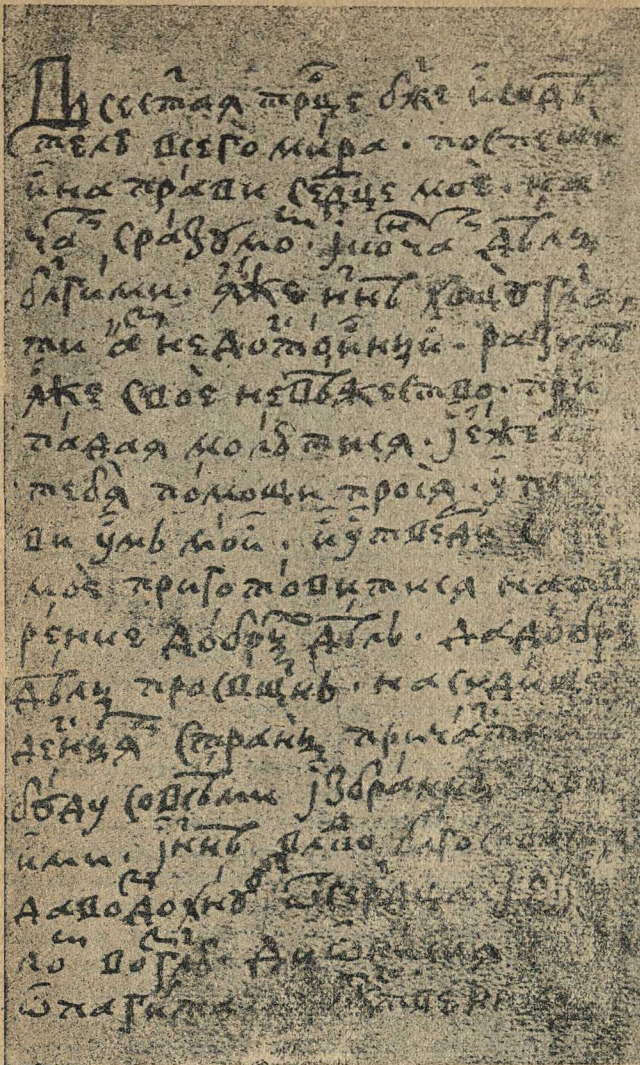 Всест҃ая трⷪ҇це бж҃е и содѣ
телю всего мира · поспеши
и направи серⷣце мое · на
чаⷮ сразумоⷨ · ӏкончаⷮ дѣлы
блгими · яже нн҃ѣ хощу гла
ти аⷥ недостойный · разумѣ
яже свое невѣжество · при
падая молютися · ӏеже
тебя помощи прося · упра
ви умъ мой · и утверди
мое приготовитися натв
рение добрыⷯ дѣлъ · дадобры
дѣлы просвѣщнъ · насудище
десныя страны причаст
буду совсѣми ӏзбранны
ими · ӏнн҃ѣ влⷣко блгослови
давоздохнувъ ѿсердца
воглю · дионисия